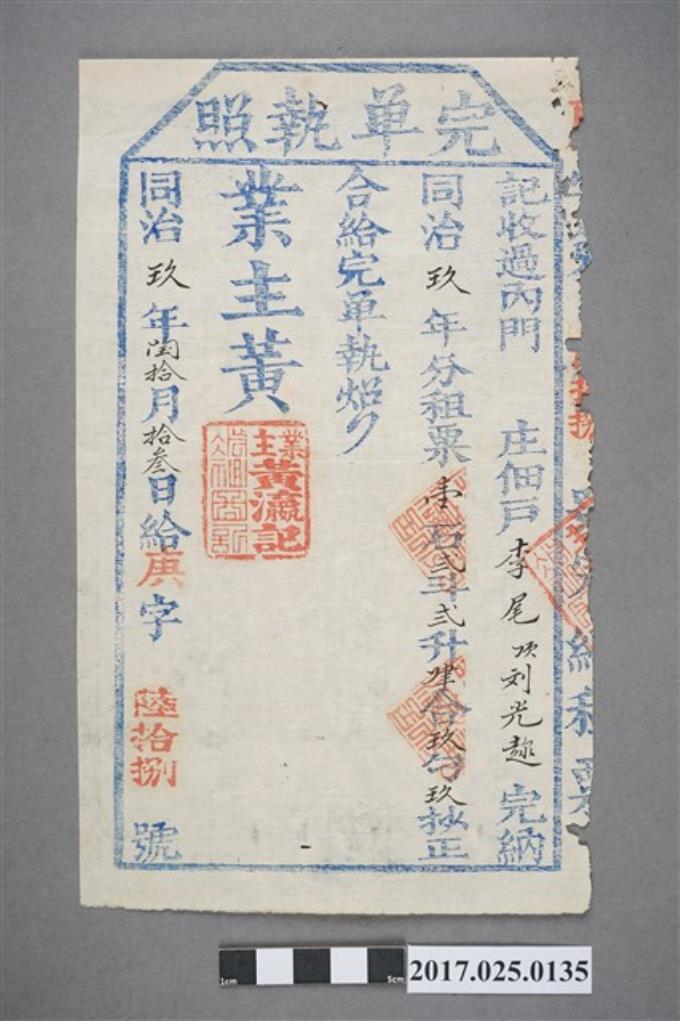 完單執照
記收過內門 庄佃戶李尾頂刘光趂 完納
同治玖年分租粟壹石弍斗弍升肆合玖勺玖抄正
合給完單執炤
業主黃
業主黃瀛記
同治玖年閏拾月拾叁日給庚字 陸拾捌 號
1cm
5cm
2017.025.0135